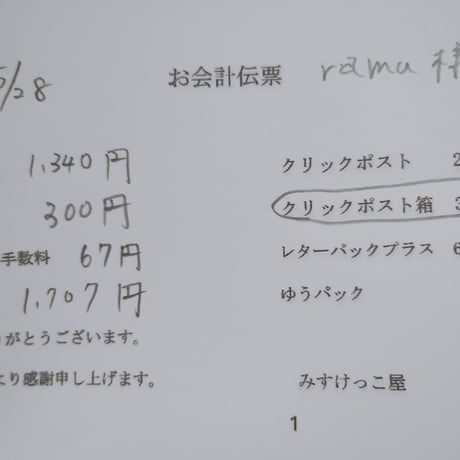 5/28 お会計伝票 ramu 様
1,340円 クリックポスト 2
300円 クリックポスト箱 3
手数料 67円 レターパックプラス 6
1,707円 ゆうパック
がとうございます。
より感謝申し上げます。 みすけっこ屋
1